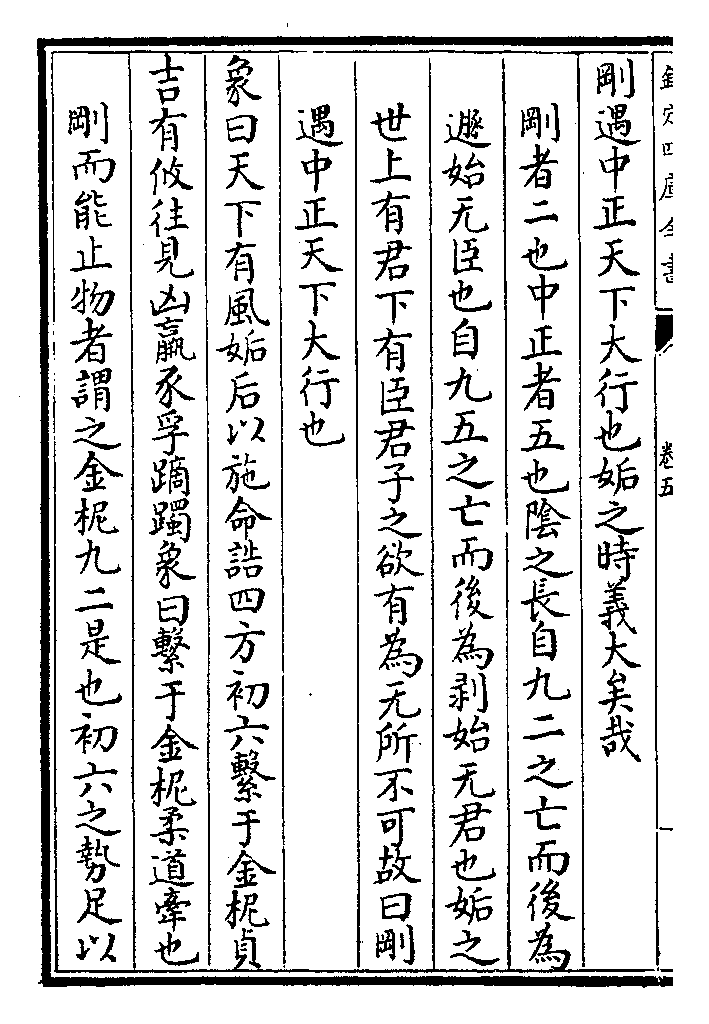 欽定四庫全書
卷五
剛遇中正天下大行也姤之時義大矣哉
剛者二也中正者五也陰之長自九二之亡而後為
遯始无臣也自九五之亡而後為剥始无君也姤之
世上有君下有臣君子之欲有為无所不可故曰剛
遇中正天下大行也
象曰天下有風姤后以施命誥四方初六繫于金柅貞
吉有攸往見凶羸豕孚蹢躅象曰繫于金柅柔道牽也
剛而能止物者謂之金柅九二是也初六之勢足以